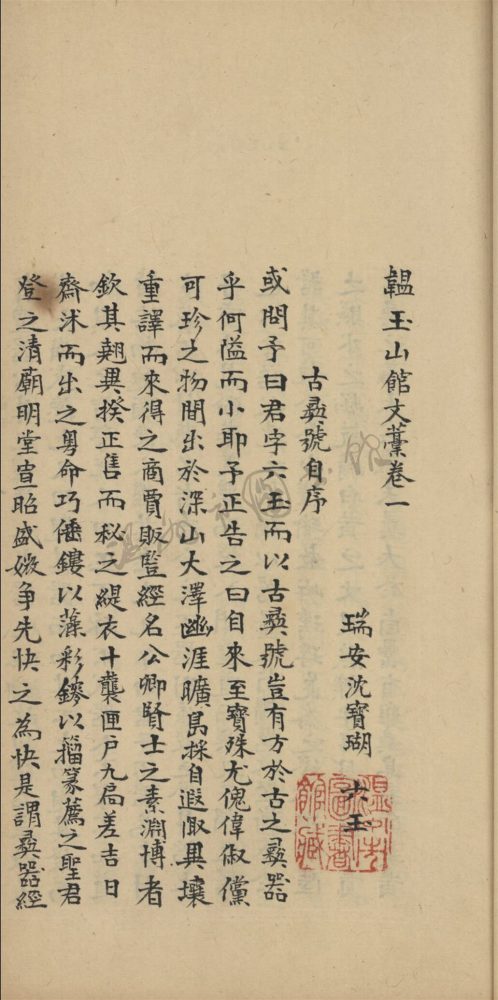 韞玉山館文藳卷一
瑞安沈寶瑚 六玉
古彝號自序
或問予曰君字六玉而以古彝號豈有方於古之彝器
乎何隘而小耶予正告之曰自來至寶殊尤傀偉俶儻
可珍之物間出於深山大澤幽涯曠島採自遐陬異壤
重譯而來得之商賈販豎經名公卿賢士之素淵博者
欽其翹異揆正售而秘之緹衣十襲匣戶九扃差吉日
齋沐而出之粵命巧倕鏤以藻彩鏐以籀篆薦之聖君
登之清廟明堂宣昭盛媺争先快之為快是謂彝器經
溫州市圖書館藏